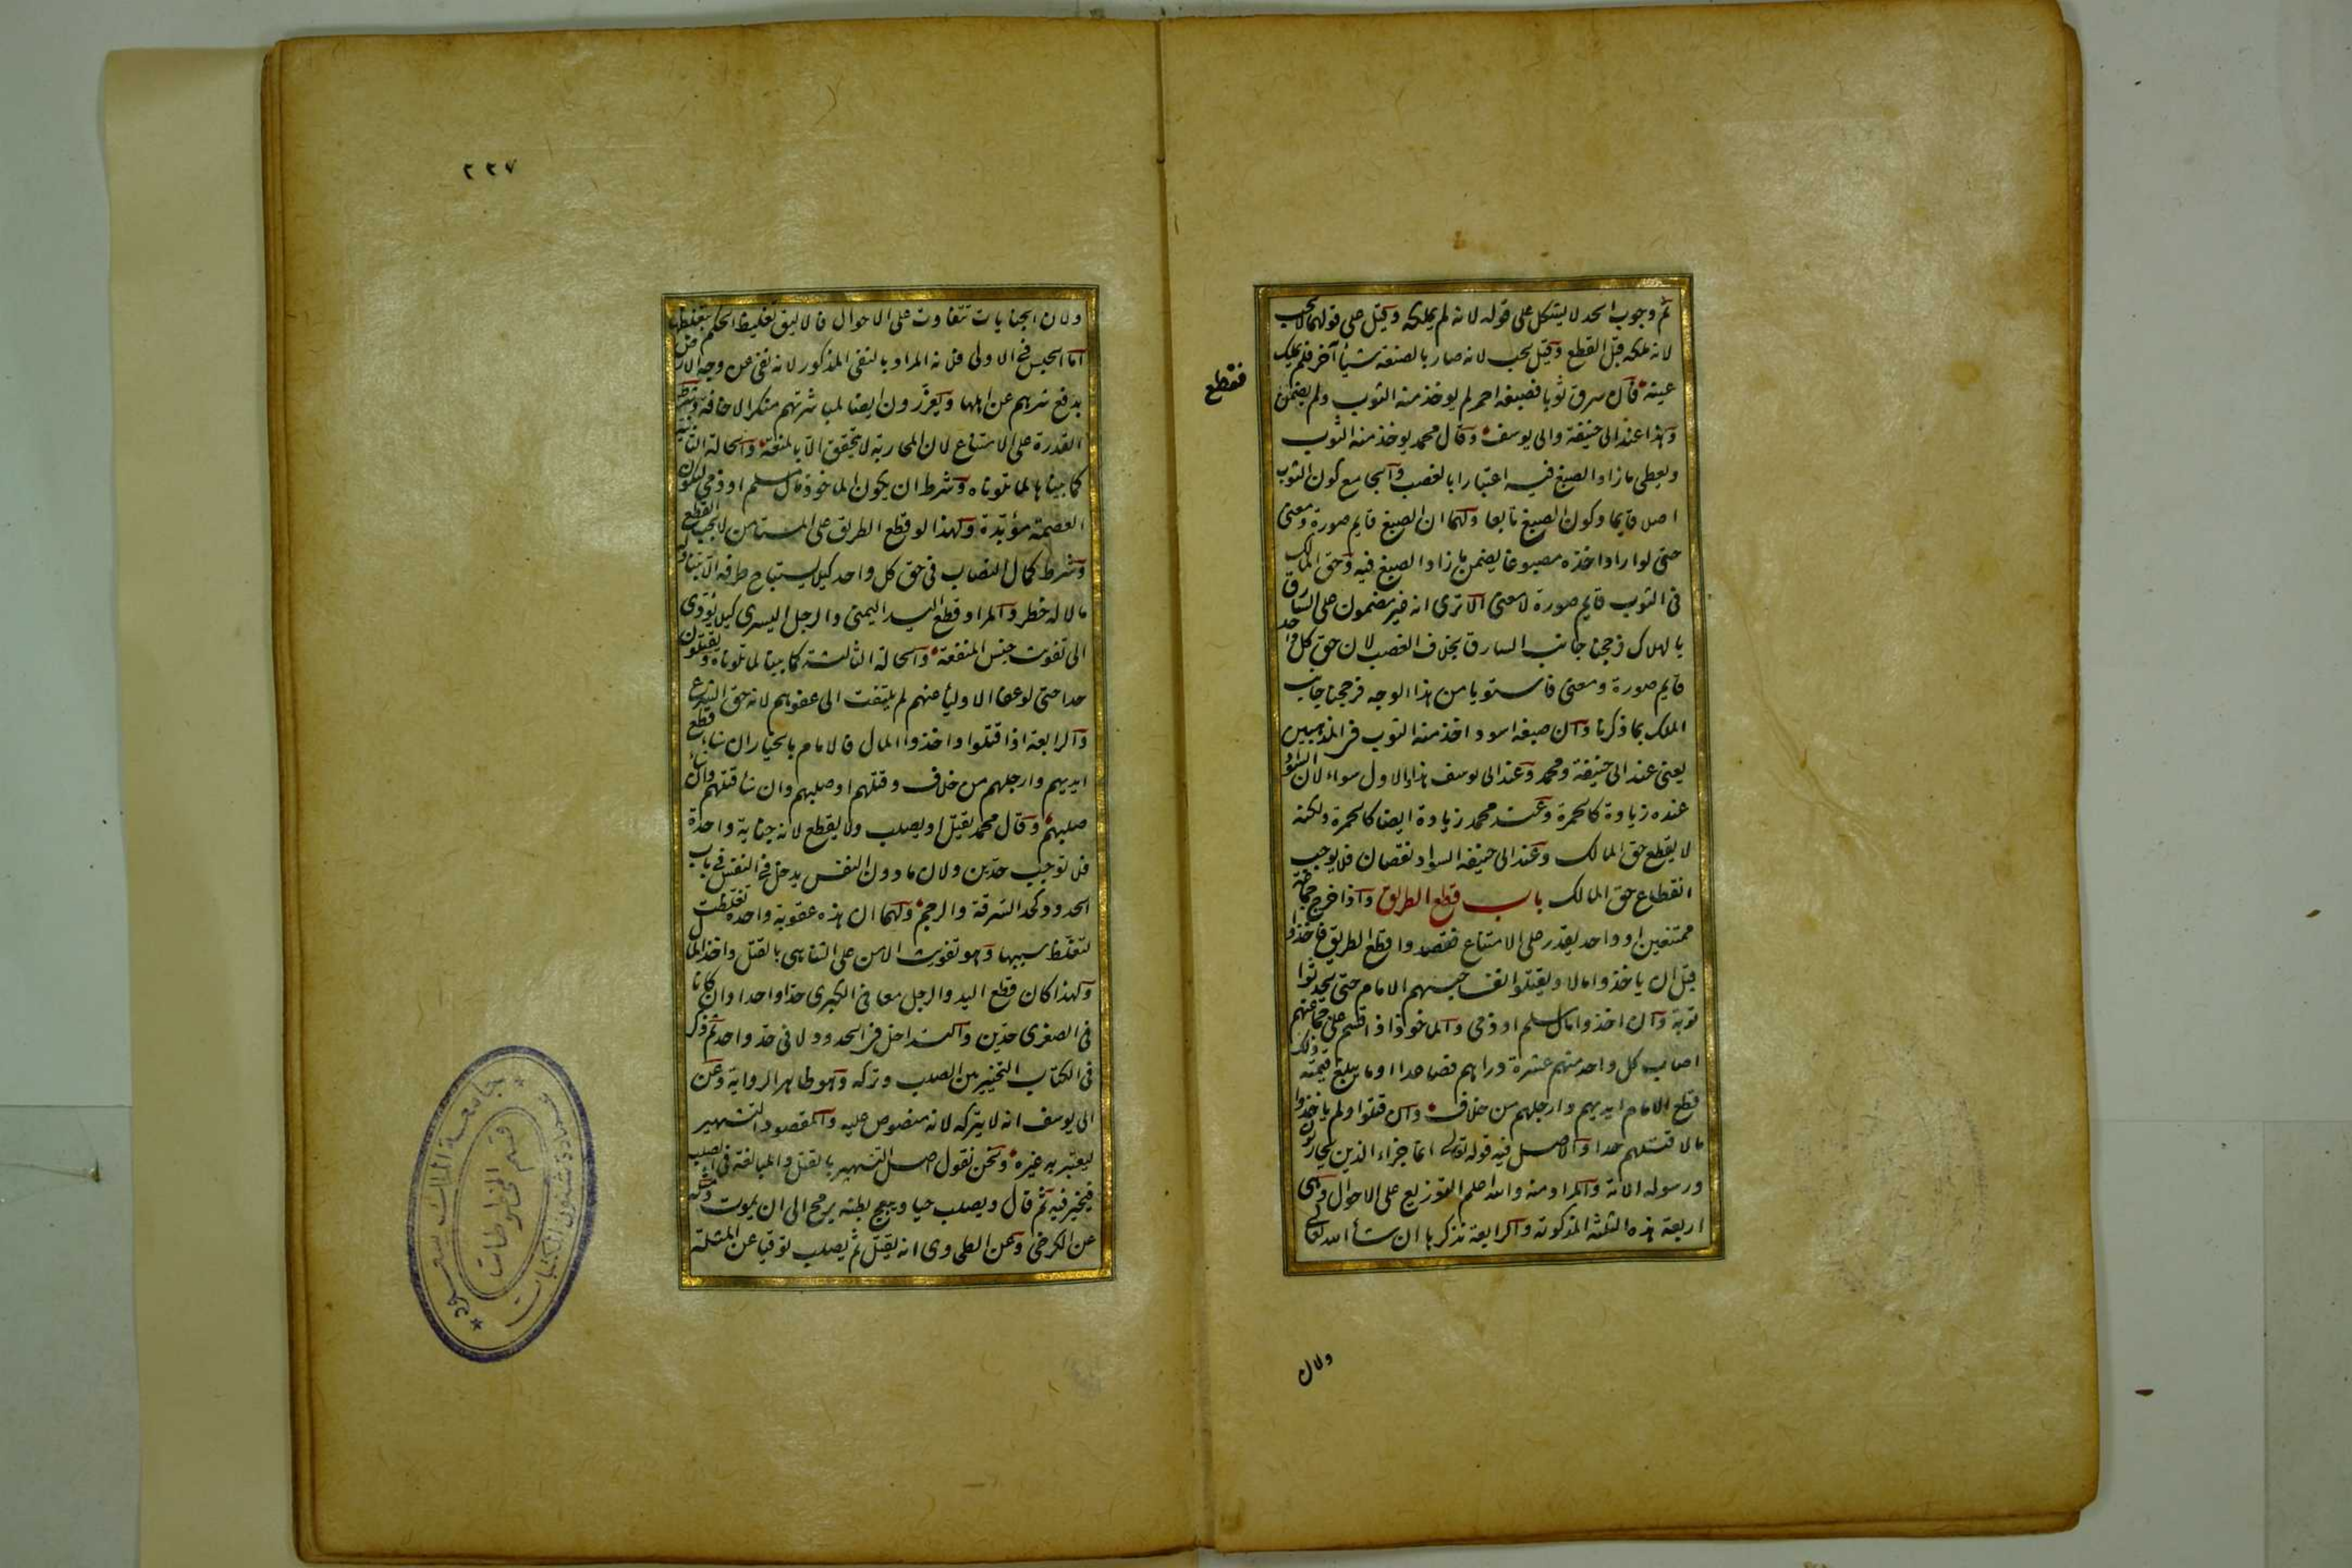 ثم وجوب الحد لا يشكل على قوله لانه لم يملكه وقيل على قولهما لا يجب
لانه ملكه قبل القطع وقيل يجب لانه صار بالصنعة شيأ آخر فلم يملك
عينه قال سرق ثوبا فصبغه احمر لم يوخذ منه الثوب ولم يضمن
فقطع
وهذا عند ابى حنيفة وابى يوسف وقال محمد يوخذ منه الثوب
ويعطى ما زاد الصبغ فيه اعتبارا بالغصب والجامع كون الثوب
اصلا قايما وكون الصبغ تابعا ولهما ان الصبغ قايم صورة ومعنى
حتى لو اراد اخذه مصبوغا يضمن ما زاد الصبغ فيه وحق المالك
فى الثوب قايم صورة لا معنى الا ترى انه غير مضمون على السارق
بالهلاك فرجحنا جانب السارق بخلاف الغصب لان حق كل واحد
قايم صورة ومعنى فاستويا من هذا الوجه فرجحنا جانب
الملك بما ذكرنا وان صبغه اسود اخذ منه الثوب فى المذهبين
يعنى عند ابى حنيفة ومحمد وعند ابى يوسف هذا والاول سواء لان السواد
عنده زيادة كالحمرة وعند محمد زيادة ايضا كالحمرة ولكنه
لا يقطع حق المالك وعند ابى حنيفة السواد نقصان فلا يوجب
انقطاع حق المالك باب قطع الطريق واذا خرج جماعة
ممتنعين او واحد يقدر على الامتناع فقصدوا قطع الطريق فاخذوا
قبل ان ياخذوا مالا ويقتلوا نفسا حبسهم الامام حتى يحدثوا
توبة وان اخذوا مال مسلم او ذمى والماخوذ اذا قسم على جماعتهم
اصاب كل واحد منهم عشرة دراهم فصاعدا او ما يبلغ قيمته ذلك
قطع الامام ايديهم وارجلهم من خلاف وان قتلوا ولم ياخذوا
مالا قتلهم حدا والاصل فيه قوله تعالى انما جزاء الذين يحاربون
ورسوله الاية والمراد منه والله اعلم التوزيع على الاحوال وهى
اربعة هذه الثلثة المذكورة والرابعة نذكرها ان شاء الله تعالى
ولان
٢٢٧
ولان الجنايات تتفاوت على الاحوال فالاليق تغليظ الحكم بتغلظها
اما الحبس فى الاولى فلانه المراد بالنفى المذكور لانه نفى عن وجه الارض
بدفع شرهم عن اهلها ويعزرون ايضا لمباشرتهم منكر الاخافة وشرط
القدرة على الامتناع لان المحاربة لا تتحقق الا بالمنعة والحالة الثانية
كما بيناها لما تلوناه وشرط ان يكون الماخوذ مال مسلم او ذمى لتكون
العصمة مؤبدة ولهذا لو قطع الطريق على المستامن لا يجب القطع
وشرط كمال النصاب فى حق كل واحد كيلا يستباح طرفه الا بتناوله
ما لا له خطر والمراد قطع اليد اليمنى والرجل اليسرى كيلا يؤدى
الى تفويت جنس المنفعة والحالة الثالثة كما بينا لما تلوناه ويقتلون
حدا حتى لو عفا الاولياء عنهم لم يلتفت الى عفوهم لانه حق الشرع
والرابعة اذا قتلوا واخذوا المال فالامام بالخيار ان شاء قطع
ايديهم وارجلهم من خلاف وقتلهم او صلبهم وان شاء قتلهم وان شاء
صلبهم وقال محمد يقتل او يصلب ولا يقطع لانه جناية واحدة
فلا توجب حدين ولان ما دون النفس يدخل فى النفس فى باب
الحدود كحد السرقة والرجم ولهما ان هذه عقوبة واحدة تغلظت
لتغلظ سببها وهو تفويت الامن على التناهى بالقتل واخذ المال
ولهذا كان قطع اليد والرجل معا فى الكبرى حدا واحدا وان كانا
فى الصغرى حدين والتداخل فى الحدود لا فى حد واحد ثم ذكر
فى الكتاب التخيير بين الصلب وتركه وهو ظاهر الرواية وعن
ابى يوسف انه لا يتركه لانه منصوص عليه والمقصود التشهير
ليعتبر به غيره ونحن نقول اصل التشهير بالقتل والمبالغة فى الصلب
فيخير فيه ثم قال ويصلب حيا ويبعج بطنه برمح الى ان يموت ومثله
عن الكرخى وعن الطحاوى انه يقتل ثم يصلب توقيا عن المثلة
جامعة الملك سعود
عمادة شئون المكتبات
قسم المخطوطات